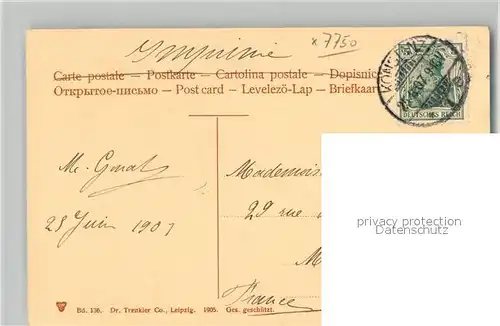 Imprimé x 7750
Carte postale — Postkarte — Cartolina postale — Dopisnice
Открытое-письмо — Post card — Levelező-Lap — Briefkaart
DEUTSCHES REICH
Mademois
29 rue
M
France
25 Juin 1907
privacy protection
Datenschutz
Bd. 136. Dr. Trenkler Co., Leipzig. 1905. Ges. geschützt.